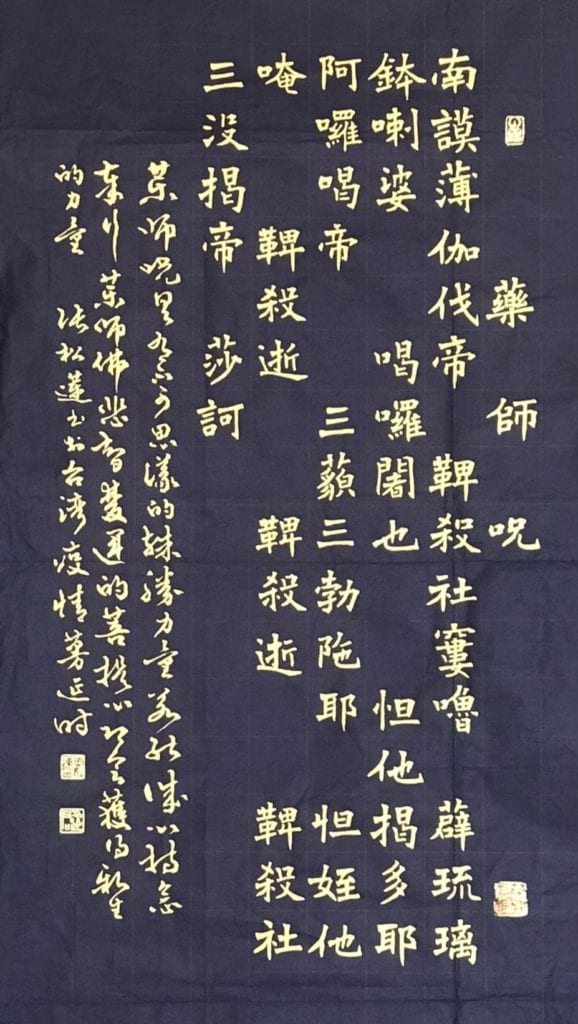 藥師呪
南謨薄伽伐帝 鞞殺社窶嚕 薜琉璃
鉢喇婆 喝囉闍也 怛他揭多耶
阿囉喝帝 三藐三勃陁耶 怛姪他
唵 鞞殺逝 鞞殺逝 鞞殺社
三没揭帝 莎訶
藥師呪具有不可思議的殊勝力量若能誠心持念
奉行藥師佛悲智雙運的菩提心即会獲得新生
的力量 張松蓮書於台湾疫情蔓延時